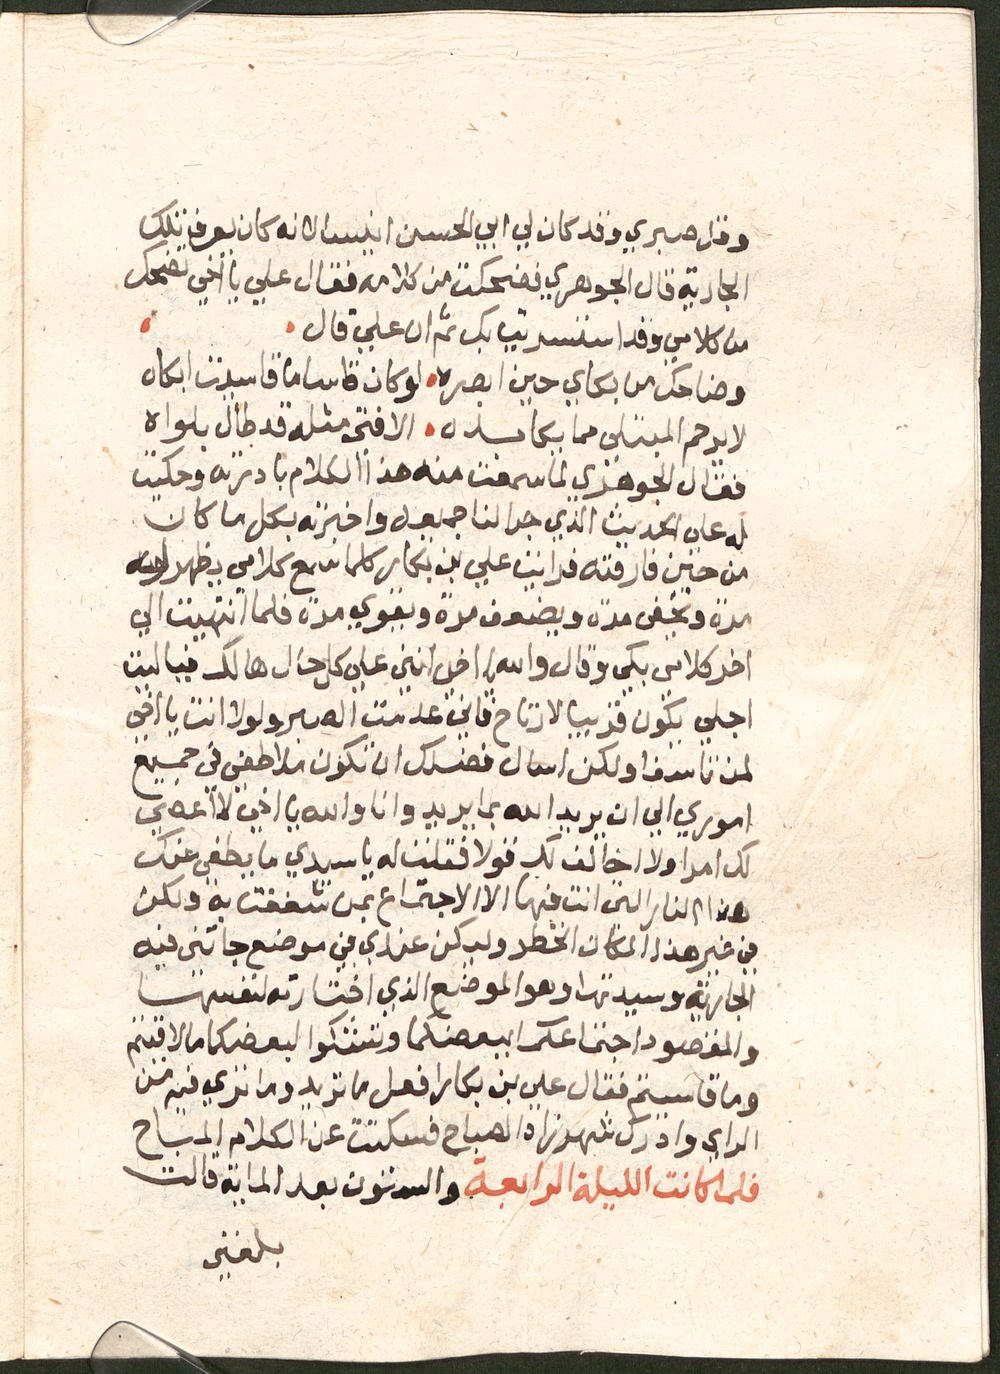 وقل صبري وقد كان لي ابي الحسن انيسا لانه كان يعرف تلك
الجارية قال الجوهري فضحكت من كلامه فقال علي يا اخي تضحك
من كلامي وقد استسريت بك ثم ان علي قال
وضاحك من بكاي حين ابصره لو كان قاسا ما قاسيت ابكاه
لا يرحم المبتلي مما يكابده الا فتى مثله قد طال بلواه
فقال الجوهري لما سمعت منه هذا الكلام بادرته وحكيت
له علي الحديث الذي جرا لنا جميعه واخبرته بكل ما كان
من حين فارقته فرايت علي بن بكار كلما سمع كلامي يظهر لونه
مرة ويخفى مرة ويضعف مرة ويقوي مرة فلما انتهيت الي
اخر كلامي بكى وقال والله يا اخي انني علي كل حال هالك فياليت
اجلي يكون قريبا لارتاح فاني عدمت الصبر ولولا انت يا اخي
لمت تاسفا ولكن اسال فضلك ان تكون ملاطفي في جميع
اموري الي ان يريد الله بما يريد وانا والله يا اخي لا اعصي
لك امرا ولا اخالف لك قولا فقلت له يا سيدي ما يطفي عنك
هذه النار التي انت فيها الا الاجتماع بمن شغفت به ولكن
في غير هذا المكان الخطر وليكن عندي في موضع جاتني فيه
الجارية وسيدتها وهو الموضع الذي اختارته لنفسها
والمقصود اجتماعكما ببعضكما وتشكوا لبعضكما ما لاقيتم
وما قاسيتم فقال علي بن بكار افعل ما تريد وما تري فيه من
الراي وادرك شهرزاد الصباح فسكتت عن الكلام المباح
فلما كانت الليلة الرابعة والستون بعد الماية قالت
بلغني